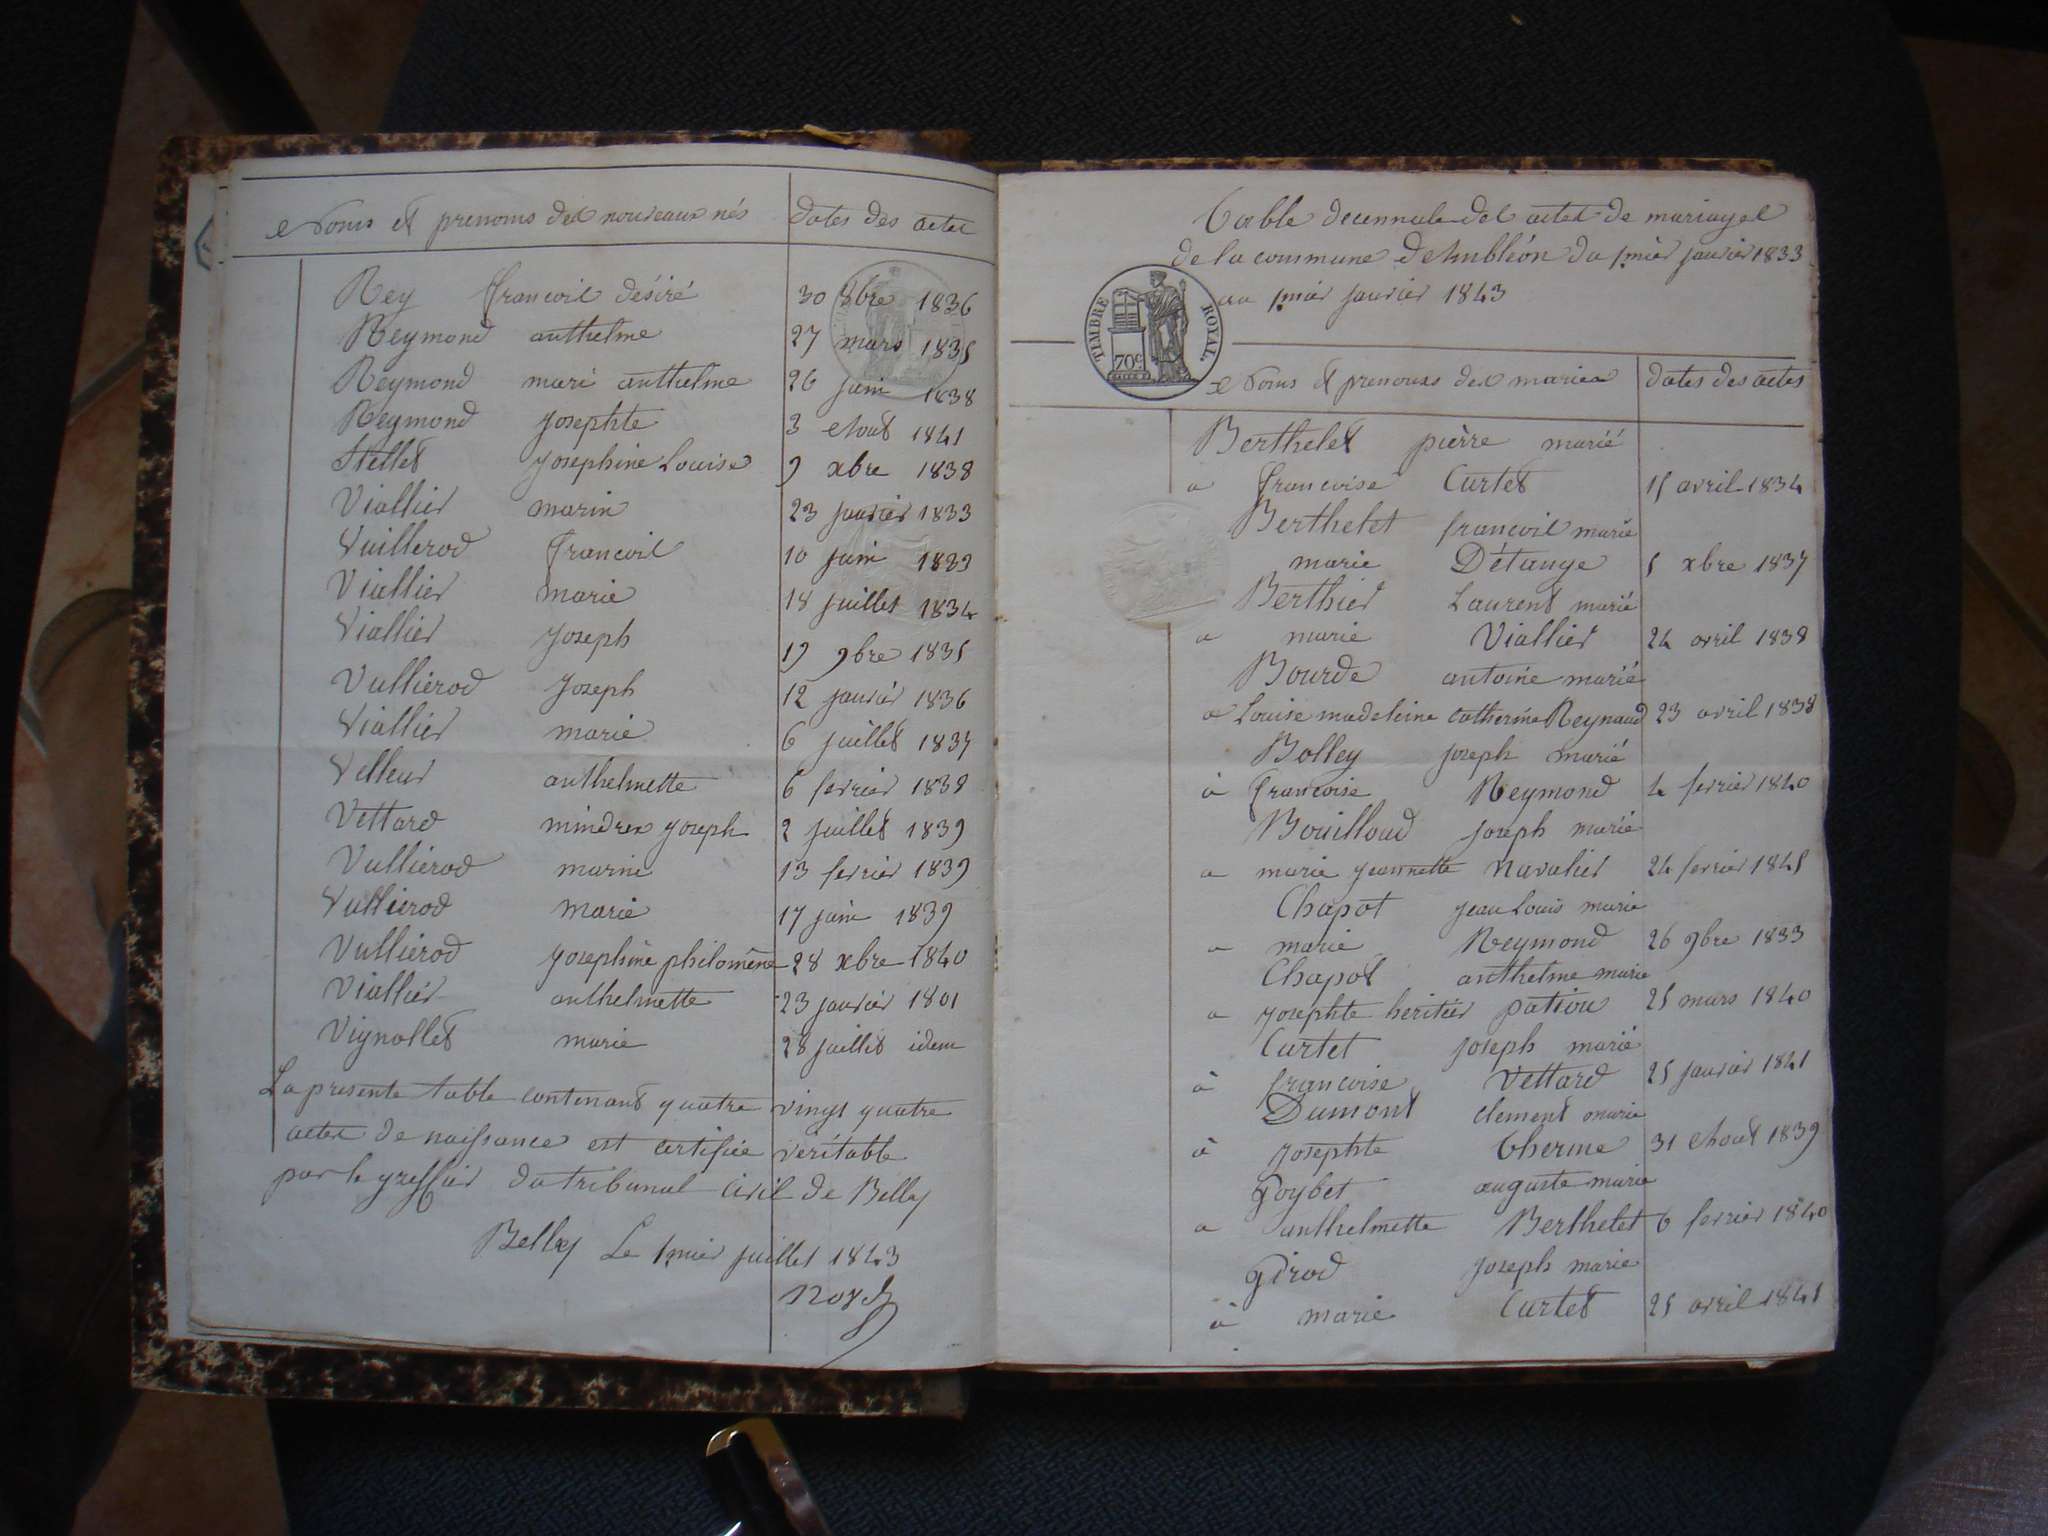 Noms et prenoms des nouveaux nés dates des actes
Rey francois désiré 30 8bre 1836
Reymond anthelme 27 mars 1835
Reymond marie anthelme 26 juin 1838
Reymond Josephte 3 Aout 1841
Stellet Josephine Louise 9 xbre 1838
Viallier marin 23 janvier 1833
Vuillerod francois 10 juin 1833
Viallier marie 18 juillet 1834
Viallier Joseph 19 9bre 1835
Vulliérod Joseph 12 janviér 1836
Viallier marie 6 juillet 1837
Velleur anthelmette 6 fevrier 1838
Vettard Joseph 2 juillet 1839
Vulliérod marie 13 fevrier 1839
Vulliérod Marie 17 juin 1839
Vulliérod Josephine philomène 28 xbre 1840
Viallier anthelmette 23 janvier 1801
Vignollet marie 28 juillet idem
La presente table contenant quatre vingt quatre
actes de naissance est certifiée véritable
par le greffier du tribunal Civil de Belley
Belley Le 1mier juillet 1843
Table decennale des actes de mariages
de la commune d'Ambléon du 1mier janvier 1833
au 1mier janvier 1843
TIMBRE ROYAL.
70c
Noms et prenoms des mariés dates des actes
Berthelet pièrre marié
a francoise Curtet 15 avril 1834
Berthelet francois marié
marie Détange 5 xbre 1837
Berthier Laurent marié
a marie Viallier 24 avril 1838
Bourde antoine marié
a Louise madeleine catherine Reynaud 23 avril 1838
Bolley joseph marié
à francoise Reymond 4 fevrier 1840
Bouilloud joseph marié
a marie jeannette Navalier 24 fevrier 1845
Chapot jean Louis marie
a marie Reymond 26 9bre 1833
Chapot anthelme marie
a Josephte heritier patiou 25 mars 1840
Curtet joseph marié
à francoise Vettard 25 janvier 1841
Dumont clement marie
à Josephte Therme 31 Aout 1839
Goybet auguste marie
a anthelmette Berthelet 6 fevrier 1840
Girod Joseph marie
à marie Curtet 25 avril 1841